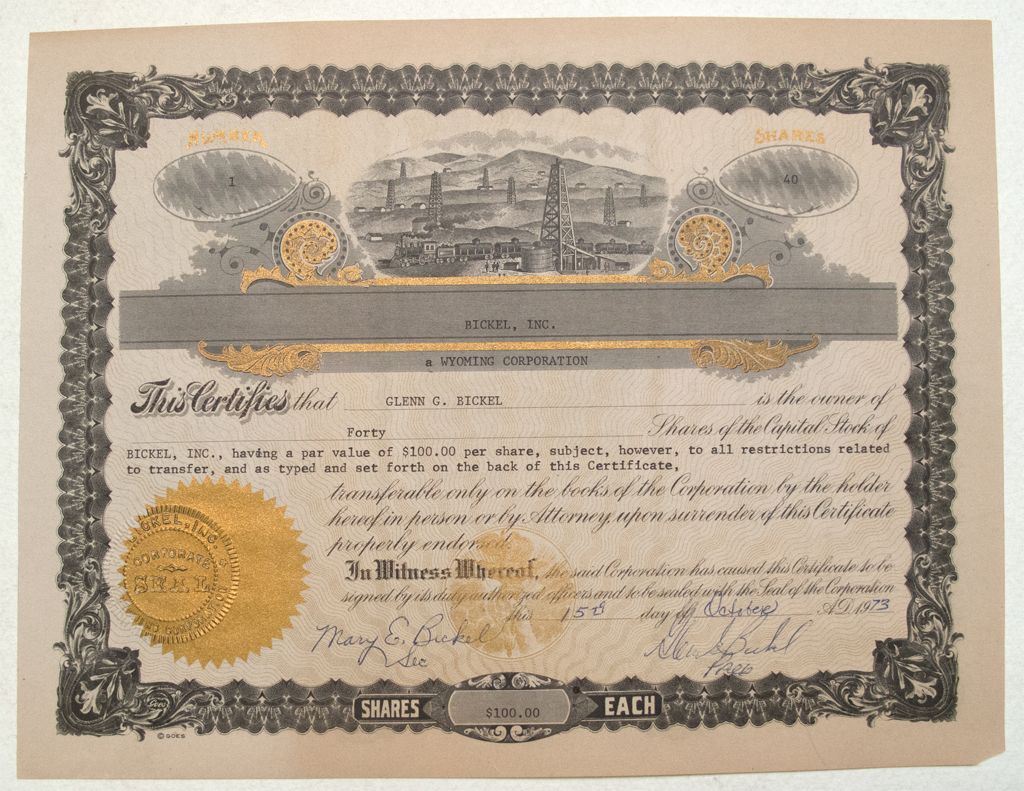 NUMBER
SHARES
1
40
BICKEL, INC.
a WYOMING CORPORATION
This Certifies that GLENN G. BICKEL is the owner of
Forty Shares of the Capital Stock of
BICKEL, INC., having a par value of $100.00 per share, subject, however, to all restrictions related
to transfer, and as typed and set forth on the back of this Certificate,
transferable only on the books of the Corporation by the holder
hereof in person or by Attorney, upon surrender of this Certificate
properly endorsed.
In Witness Whereof, the said Corporation has caused this Certificate to be
signed by its duly authorized officers and to be sealed with the Seal of the Corporation
this 15th day of October A.D. 1973
BICKEL, INC.
CORPORATE
SEAL
Mary E. Bickel
Sec
Glenn Bickel
Pres
SHARES $100.00 EACH
© GOES